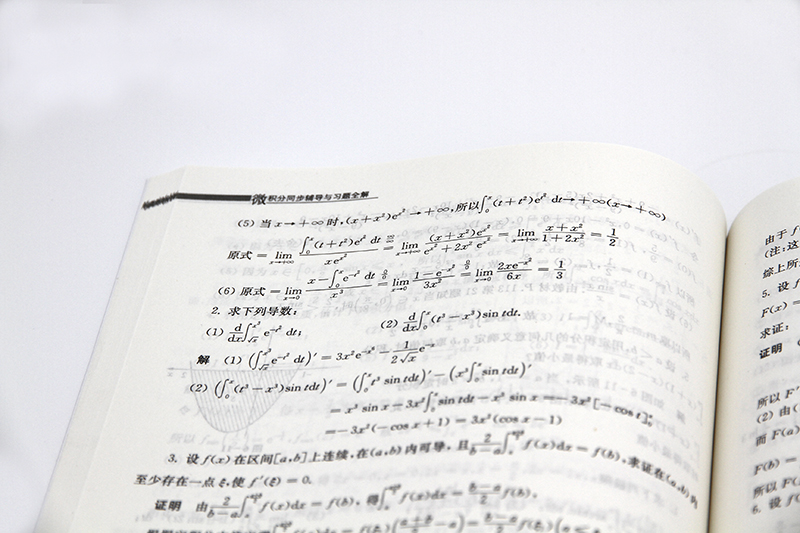 微积分同步辅导与习题全解
(5) 当 x→+∞ 时,(x+x²)e^{x²}→+∞,所以∫₀ˣ(t+t²)e^{t²} dt→+∞(x→+∞)
原式 = lim_{x→+∞} ∫₀ˣ(t+t²)e^{t²} dt / xe^{x²} =^{∞/∞} lim_{x→+∞} (x+x²)e^{x²} / (e^{x²}+2x²e^{x²}) = lim_{x→+∞} (x+x²)/(1+2x²) = 1/2
(6) 原式 = lim_{x→0} (x−∫₀ˣe^{-t²} dt)/x³ =^{0/0} lim_{x→0} (1−e^{-x²})/3x² =^{0/0} lim_{x→0} 2xe^{-x²}/6x = 1/3
2. 求下列导数:
(1) d/dx ∫_{√x}^{x³} e^{-t²} dt; (2) d/dx ∫₀ˣ(t³−x³)sin tdt.
解 (1) (∫_{√x}^{x³} e^{-t²} dt)′ = 3x²e^{-x⁶} − 1/(2√x) e^{-x}
(2) (∫₀ˣ(t³−x³)sin tdt)′ = (∫₀ˣt³ sin tdt)′ − (x³∫₀ˣsin tdt)′
= x³ sin x − 3x²∫₀ˣsin tdt − x³ sin x = −3x²[−cos t]₀ˣ
= −3x²(−cos x+1) = 3x²(cos x−1)
3. 设 f(x) 在区间[a,b]上连续,在(a,b)内可导,且 2/(b−a) ∫ₐ^{(a+b)/2} f(x)dx = f(b),求证在(a,b)内
至少存在一点 ξ,使 f′(ξ) = 0.
证明 由 2/(b−a) ∫ₐ^{(a+b)/2} f(x)dx = f(b), 得∫ₐ^{(a+b)/2} f(x)dx = (b−a)/2 f(b),
由于 f
(注:这
综上所
5. 设 f
F(x) =
求证:
证明
所以 F′
(2) 由(
而 F(a)
F(b) =
所以 F(
6. 设 f(